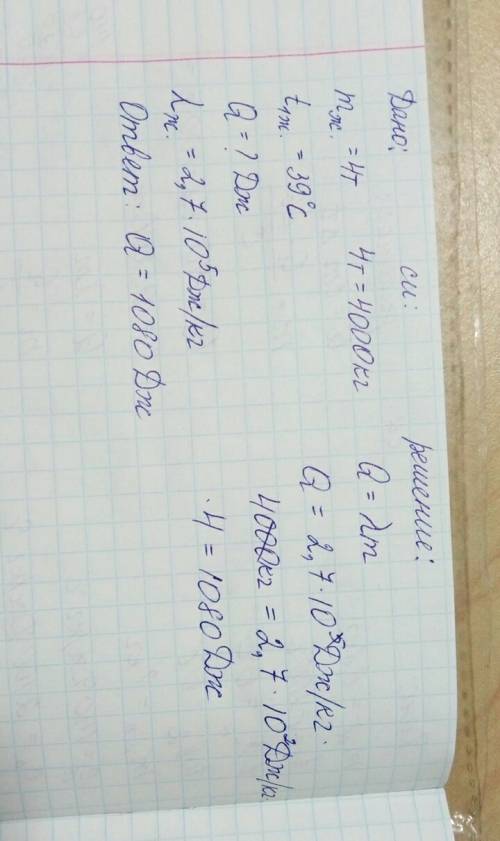 Дано:
mж. = 4т
t1ж. = 39°С
Q = ? Дж
λж. = 2,7·10⁵Дж/кг
Ответ: Q = 1080 Дж
си:
4т = 4000кг
решение:
Q = λm
Q = 2,7·10⁵Дж/кг·
4000кг = 2,7·10²Дж/к
·4 = 1080Дж